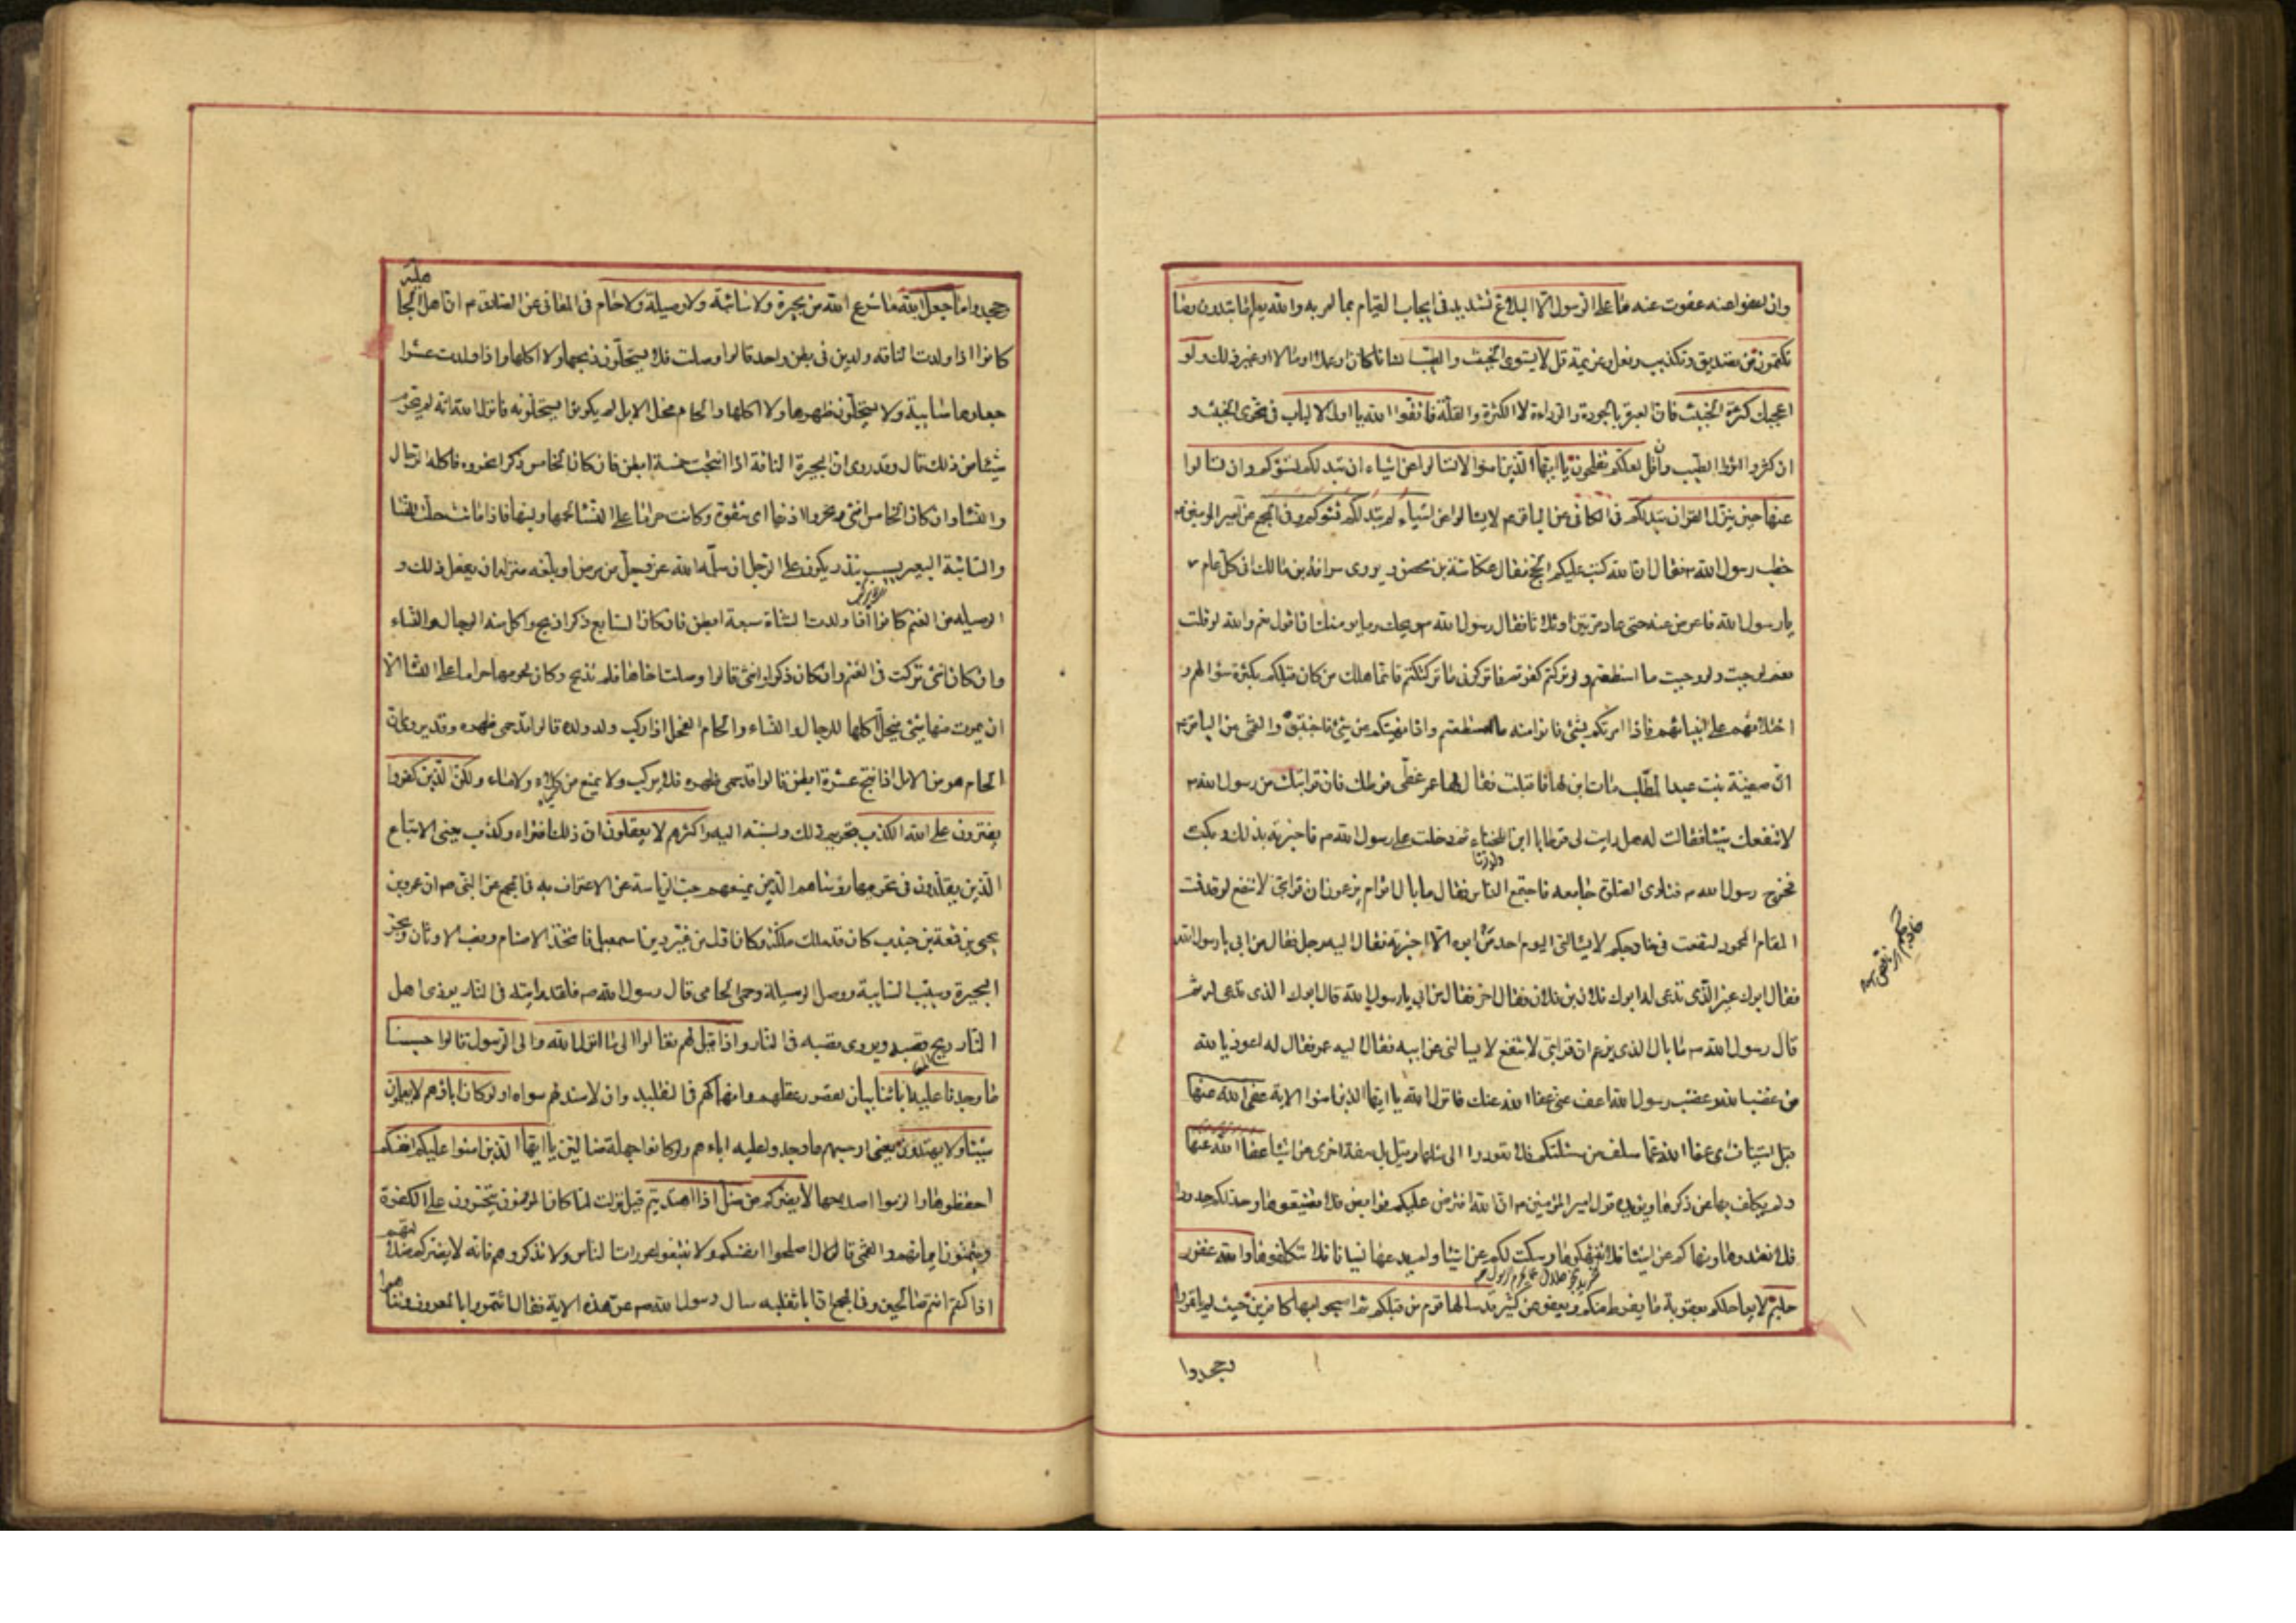 وان تعفوا عنه عفوت عنه ما على الرسول الا البلاغ تشديد في ايجاب القيام بما امر به والله يعلم ما تبدون وما
تكتمون من تصديق وتكذيب وفعل وعزيمة قل لا يستوى الخبيث والطيب انسانا كان او عملا او مالا او غير ذلك ولو
اعجبك كثرة الخبيث فان العبرة بالجودة والرداءة لا الكثرة والقلة فاتقوا الله يا اولى الالباب في تحرى الخبيث و
ان كثر واثروا الطيب وان قل لعلكم تفلحون يا ايها الذين امنوا لا تسالوا عن اشياء ان تبد لكم تسؤكم وان تسالوا
عنها حين ينزل القران تبد لكم في الكافي عن الباقر م لا تسالوا عن اشياء لم تبد لكم تسؤكم وفي المجمع عن امير المومنين م
خطب رسول الله ص فقال ان الله كتب عليكم الحج فقال عكاشة بن محصن ويروى سراقة بن مالك افي كل عام
يا رسول الله فاعرض عنه حتى عاد مرتين او ثلاثا فقال رسول الله ص ويحك وما يومنك ان اقول نعم والله لو قلت
نعم لوجبت ولو وجبت ما استطعتم ولو تركتم كفرتم فاتركونى ما تركتكم فانما هلك من كان قبلكم بكثرة سؤالهم و
اختلافهم على انبيائهم فاذا امرتكم بشئ فاتوا منه ما استطعتم واذا نهيتكم عن شئ فاجتنبوه والقمى عن الباقر م
ان صفية بنت عبد المطلب مات ابن لها فاقبلت فقال لها عمر غطى قرطك فان قرابتك من رسول الله ص
لا تنفعك شيئا فقالت له هل رايت لى قرطا يا ابن اللخناء ثم دخلت على رسول الله ص فاخبرته بذلك وبكت
فخرج رسول الله ص فنادى الصلوة جامعه فاجتمع الناس فقال ما بال اقوام يزعمون ان قرابتى لا تنفع لو قد قمت
المقام المحمود لشفعت في خارجكم لا يسالنى اليوم احد من ابوه الا اخبرته فقال اليه رجل فقال من ابى يا رسول الله
فقال ابوك غير الذى تدعى له ابوك فلان بن فلان فقال اخر فقال من ابى يا رسول الله قال ابوك الذى تدعى له ثم
قال رسول الله ص ما بال الذى يزعم ان قرابتى لا تنفع لا يسالنى عن ابيه فقال اليه عمر فقال له اعوذ بالله
من غضب الله وغضب رسول الله اعف عنى عفا الله عنك فانزل الله يا ايها الذين امنوا الاية عفى الله عنها
قبل استيناف اى عفا الله عما سلف من مسئلتكم فلا تعودوا الى مثلها وقيل بل صفة اخرى من اشياء عفا الله عنها
ولم يكلف بها عن ذكرها ويؤيده قول امير المؤمنين م ان الله افترض عليكم فرايض فلا تضيعوها وحد لكم حدودا
فلا تعتدوها ونهاكم عن اشياء فلا تنتهكوها وسكت لكم عن اشياء ولم يدعها نسيانا فلا تتكلفوها والله غفور
حليم لا يعاجلكم بعقوبة ما يفرط منكم ويعفو عن كثير قد سالها قوم من قبلكم ثم اصبحوا بها كافرين حيث لم ياتمروا
وجحدوا
وجحدوا ما جعل الله ما شرع الله من بحيرة ولا سائبة ولا وصيلة ولا حام في المعانى عن الصادق م ان اهل الجا
هلية
كانوا اذا ولدت الناقه ولدين في بطن واحد قالوا وصلت فلا يستحلون ذبحها ولا اكلها واذا ولدت عشرا
جعلوها سائبة ولا يستحلون ظهرها ولا اكلها والحام فحل الابل لم يكونوا يستحلونه فانزل الله انه لم يحرم
شيئا من ذلك قال وقد روى ان البحيرة الناقة اذا انتجت خمسة ابطن فان كان الخامس ذكرا نحروه فاكله الرجال
والنساء وان كان الخامس انثى بحروا اذنها اى شقوه وكانت حراما على النساء لحمها ولبنها فاذا ماتت حلت للنساء
والسائبة البعير يسيب بنذر يكون على الرجل ان سلمه الله عز وجل من مرض او بلغه منزله ان يفعل ذلك و
الوصيله من الغنم كانوا اذا ولدت الشاة سبعة ابطن فان كان السابع ذكرا ذبح واكل منه الرجال والنساء
وان كان انثى تركت في الغنم وان كان ذكرا وانثى قالوا وصلت اخاها فلم تذبح وكان لحومها حراما على النساء الا
ان يموت منها شئ فيحل اكلها للرجال والنساء والحام الفحل اذا ركب ولد ولده قالوا قد حمى ظهره وقد يروى ان
الحام هو من الابل اذا نتج عشرة ابطن قالوا قد حمى ظهره فلا يركب ولا يمنع من كلاء ولا ماء ولكن الذين كفروا
يفترون على الله الكذب بتحريم ذلك ونسبته اليه واكثرهم لا يعقلون ان ذلك افتراء وكذب يعنى الاتباع
الذين يقلدون في تحريمها رؤساءهم الذين يمنعهم حب الرياسة عن الاعتراف به في المجمع عن النبى ص ان عمرو بن
يحيى بن قمعة بن خندب كان قد ملك مكة وكان اول من غير دين اسمعيل فاتخذ الاصنام ونصب الاوثان وبحر
البحيرة وسيب السايبة ووصل الوصيلة وحمى الحامى قال رسول الله ص فلقد رايته في النار يوذى اهل
النار ريح قصبه ويروى يجر قصبه في النار واذا قيل لهم تعالوا الى ما انزل الله والى الرسول قالوا حسبنا
ما وجدنا عليه اباءنا بيان لقصور عقلهم وانهماكهم في التقليد وان لا سند لهم سواه اولو كان اباؤهم لا يعلمون
شيئا ولا يهتدون يعنى او حسبهم ما وجدوا عليه اباءهم ولو كانوا جهلة ضالين يا ايها الذين امنوا عليكم انفسكم
احفظوها والزموا اصلاحها لا يضركم من ضل اذا اهتديتم قيل نزلت لما كان المؤمنون يتحسرون على الكفرة
ويتمنون ايمانهم والقمى قال اصلحوا انفسكم ولا تتبعوا عورات الناس ولا تذكروهم فانه لا يضركم ضلالتهم
اذا كنتم انتم صالحين وفي المجمع ان ابا ثعلبه سال رسول الله ص عن هذه الاية فقال ائتمروا بالمعروف وتناهوا